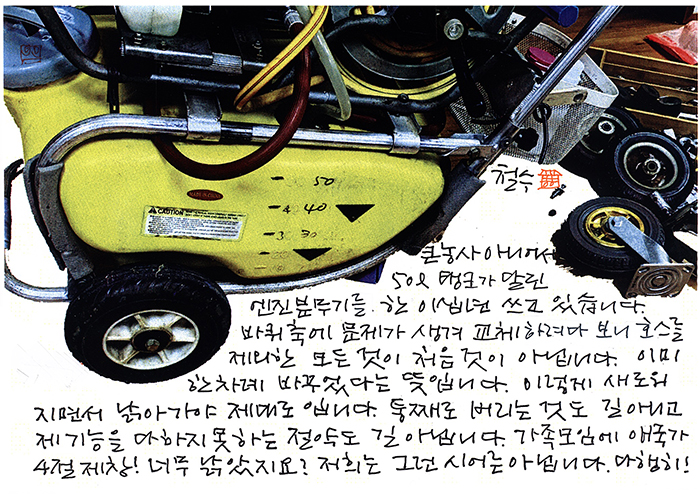 50
4 40
3 30
CAUTION
철수
큰 농사 아니어서
50ℓ 탱크가 달린
엔진분무기를 한 이십년 쓰고 있습니다.
바퀴 축에 문제가 생겨 교체하려다 보니 호스를
제외한 모든 것이 처음 것이 아닙니다. 이미
한 차례 바꾸었다는 뜻입니다. 이렇게 새로워
지면서 낡아가야 제대로 입니다. 통째로 버리는 것도 길 아니고
제 기능을 다하지 못하는 절약도 길 아닙니다. 가족모임에 애국가
4절 제창! 너무 낡았지요? 저희는 그런 시어른 아닙니다. 다행히!